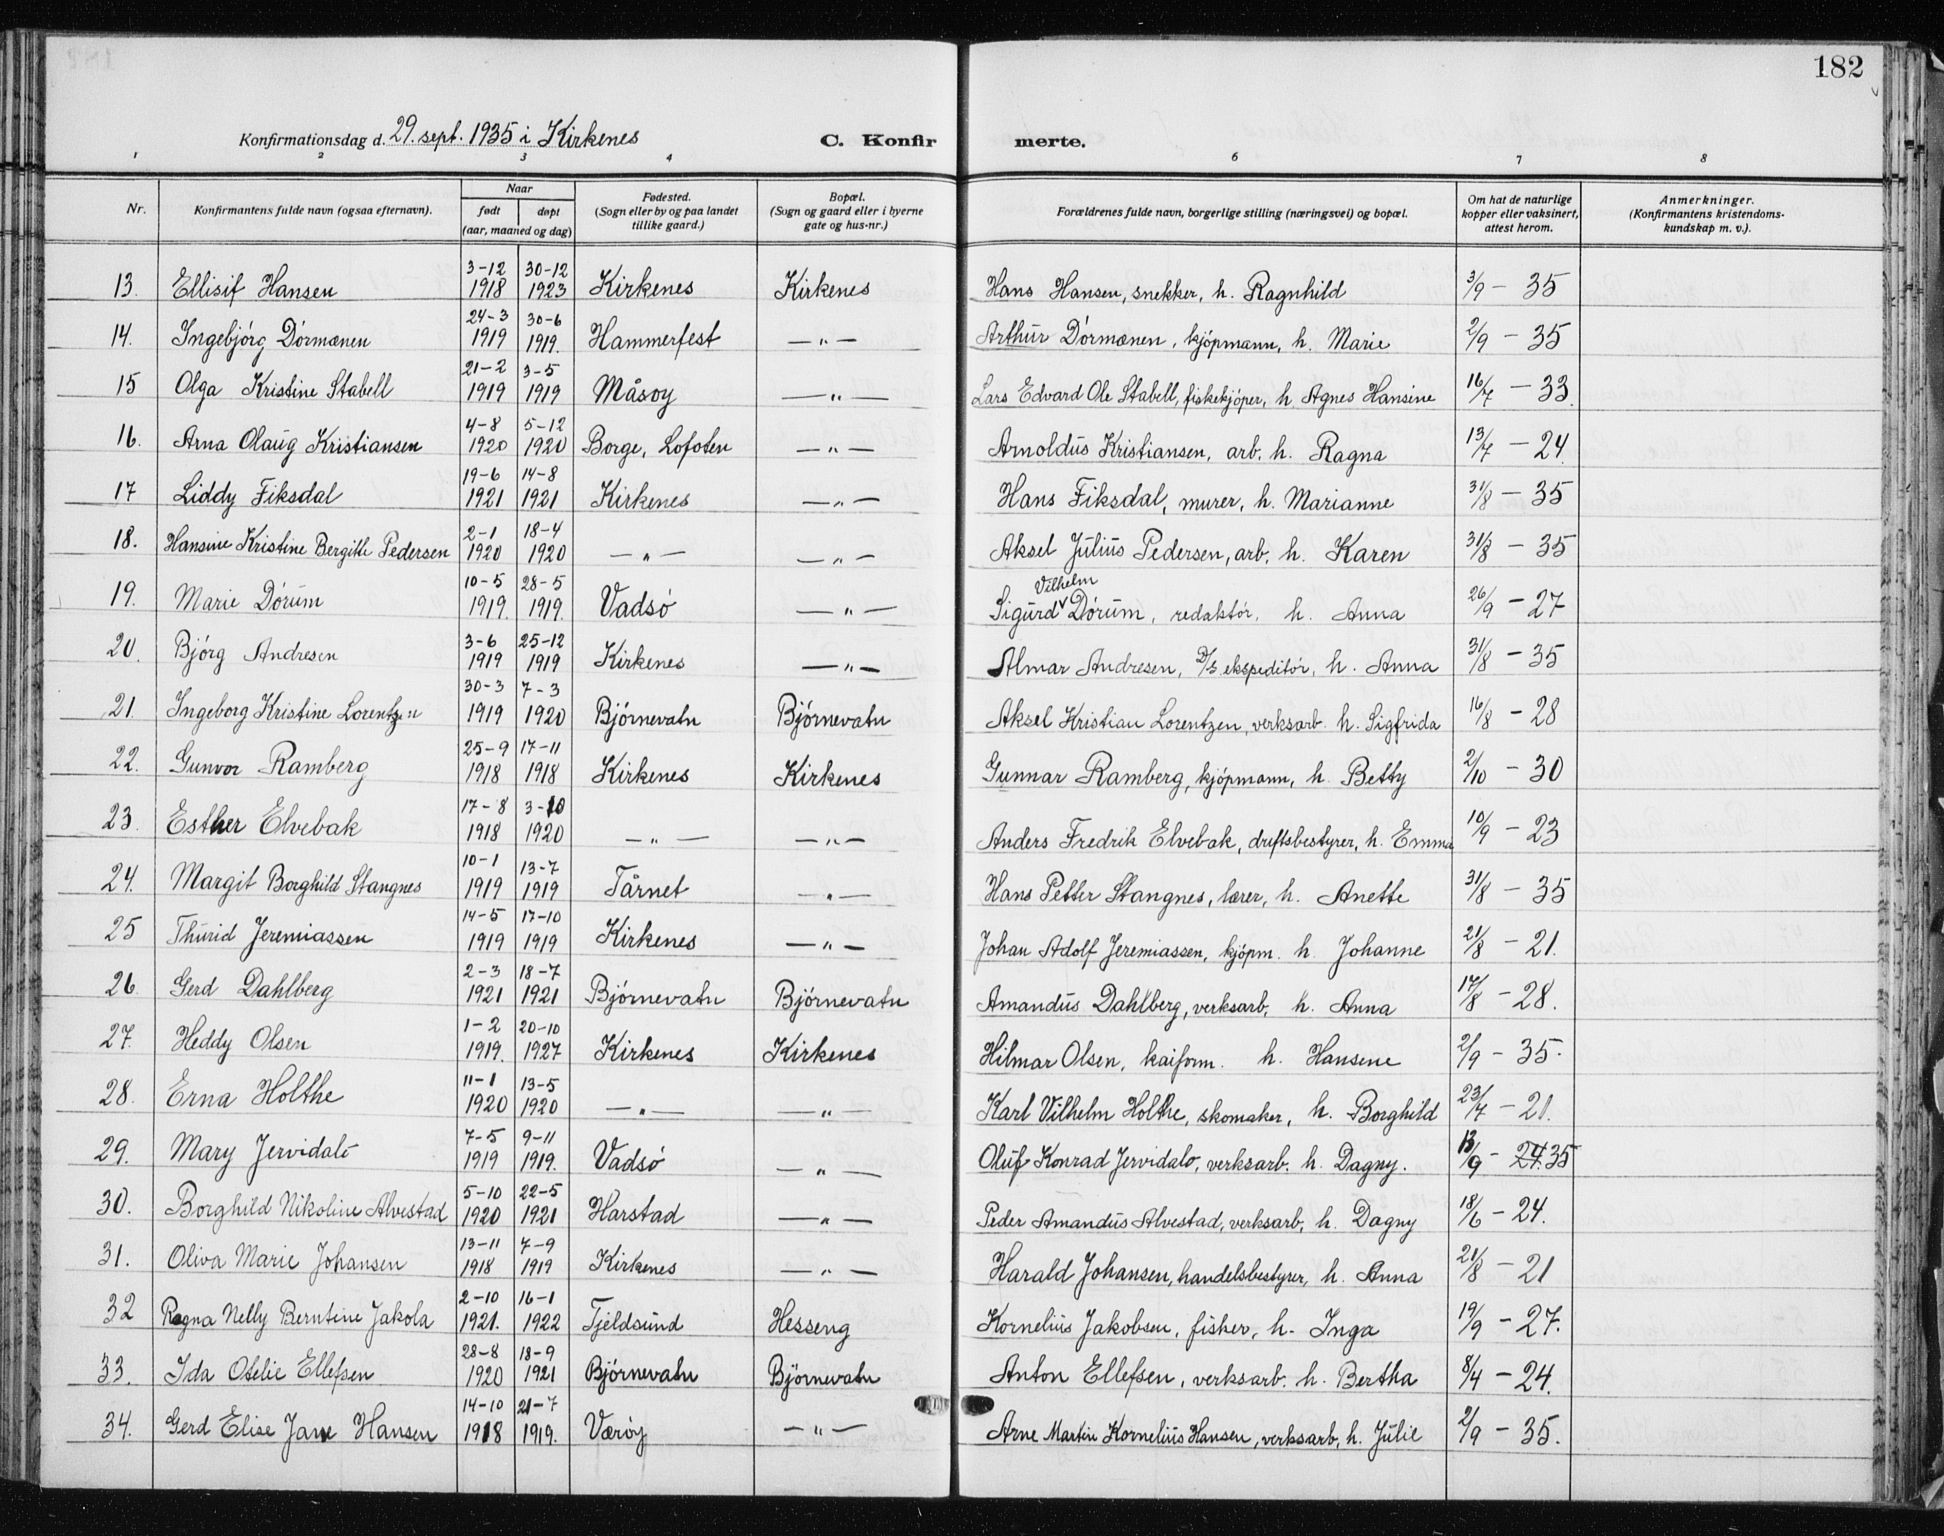 182
Konfirmationsdag d. 29. sept. 1935 i Kirkenes C. Konfir merte.
1 2 3 4 6 7 8
Nr. Konfirmantens fulde navn (ogsaa efternavn). Naar født døpt (aar, maaned og dag) Fødested. (Sogn eller by og paa landet tillike gaard.) Bopæl. (Sogn og gaard eller i byerne gate og hus-nr.) Forældrenes fulde navn, borgerlige stilling (næringsvei) og bopæl. Om hat de naturlige kopper eller vaksinert, attest herom. Anmerkninger. (Konfirmantens kristendoms-kundskap m. v.).
13. Ellisif Hansen 3-12 1918 30-12 1923 Kirkenes Kirkenes Hans Hansen, snekker, h. Ragnhild 3/9 - 35
14. Ingebjørg Dørmænen 24-3 1919 30-6 1919. Hammerfest —"— Arthur Dørmænen, kjøpmann, h. Marie 2/9 - 35
15 Olga Kristine Stabell 21-2 1919 3-5 1919 Måsøy —"— Lars Edvard Ole Stabell, fiskekjøper, h. Agnes Hansine 16/7 - 33.
16. Arna Olaug Kristiansen 4-8 1920 5-12 1920 Borge, Lofoten —"— Arnoldus Kristiansen, arb. h. Ragna 13/7 - 24.
17 Liddy Fiksdal 19-6 1921 14-8 1921 Kirkenes —"— Hans Fiksdal, murer, h. Marianne 31/8 - 35
18. Hansine Kristine Bergitte Pedersen 2-1 1920 18-4 1920 —"— —"— Aksel Julius Pedersen, arb. h. Karen 31/8 - 35
19. Marie Dørum 10-5 1919. 28-5 1919. Vadsø —"— Sigurd Vilhelm Dørum, redaktør, h. Anna 26/9 - 27
20. Bjørg Andresen 3-6 1919 25-12 1919 Kirkenes —"— Almar Andresen, D/s. ekspeditør, h. Anna 31/8 - 35
21. Ingeborg Kristine Lorentzen 30-3 1919 7-3 1920 Bjørnevatn Bjørnevatn Aksel Kristian Lorentzen, verksarb. h. Sigfrida 16/8 - 28
22. Gunvor Ramberg 25-9 1918 17-11 1918 Kirkenes Kirkenes Gunnar Ramberg, kjøpmann, h. Betty 2/10 - 30
23. Esther Elvebak 17-8 1918 3-10 1920 —"— —"— Anders Fredrik Elvebak, driftsbestyrer, h. Emma 10/9 - 23
24. Margit Borghild Stangnes 10-1 1919 13-7 1919 Tårnet —"— Hans Petter Stangnes, lærer, h. Anette 31/8 - 35
25 Thurid Jeremiassen 14-5 1919 17-10 1919 Kirkenes —"— Johan Adolf Jeremiassen, kjøpm. h. Johanne 21/8 - 21.
26. Gerd Dahlberg 2-3 1921 18-7 1921 Bjørnevatn Bjørnevatn Amandus Dahlberg, verksarb, h. Anna 17/8 - 28.
27. Heddy Olsen 1-2 1919. 20-10 1927 Kirkenes Kirkenes Hilmar Olsen, kaiform. h. Hansene 2/9 - 35.
28. Erna Holthe 11-1 1920 13-5 1920 —"— —"— Karl Vilhelm Holthe, skomaker, h. Borghild 23/7 - 21.
29. Mary Jervidalo 7-5 1919 9-11 1919. Vadsø —"— Oluf Konrad Jervidalo, verksarb. h. Dagny. 13/9 - 24. 35
30. Borghild Nikoline Alvestad 5-10 1920 22-5 1921 Harstad —"— Peder Amandus Alvestad, verksarb, h. Dagny 18/6 - 24.
31. Oliva Marie Johansen 13-11 1918 7-9 1919 Kirkenes —"— Harald Johansen, handelsbestyrer, h. Anna 21/8 - 21
32 Ragna Nelly Berntine Jakola 2-10 1921. 16-1 1922 Tjeldsund Hesseng Kornelius Jakobsen, fisker, h. Inga 19/9 - 27.
33. Ida Otelie Ellefsen 28-8 1920 18-9 1921 Bjørnevatn Bjørnevatn Anton Ellefsen, verksarb. h. Bertha 8/4 - 24.
34. Gerd Elise Jane Hansen 14-10 1918 21-7 1919. Værøy —"— Arne Martin Kornelius Hansen, verksarb, h. Julie 2/9 - 35.